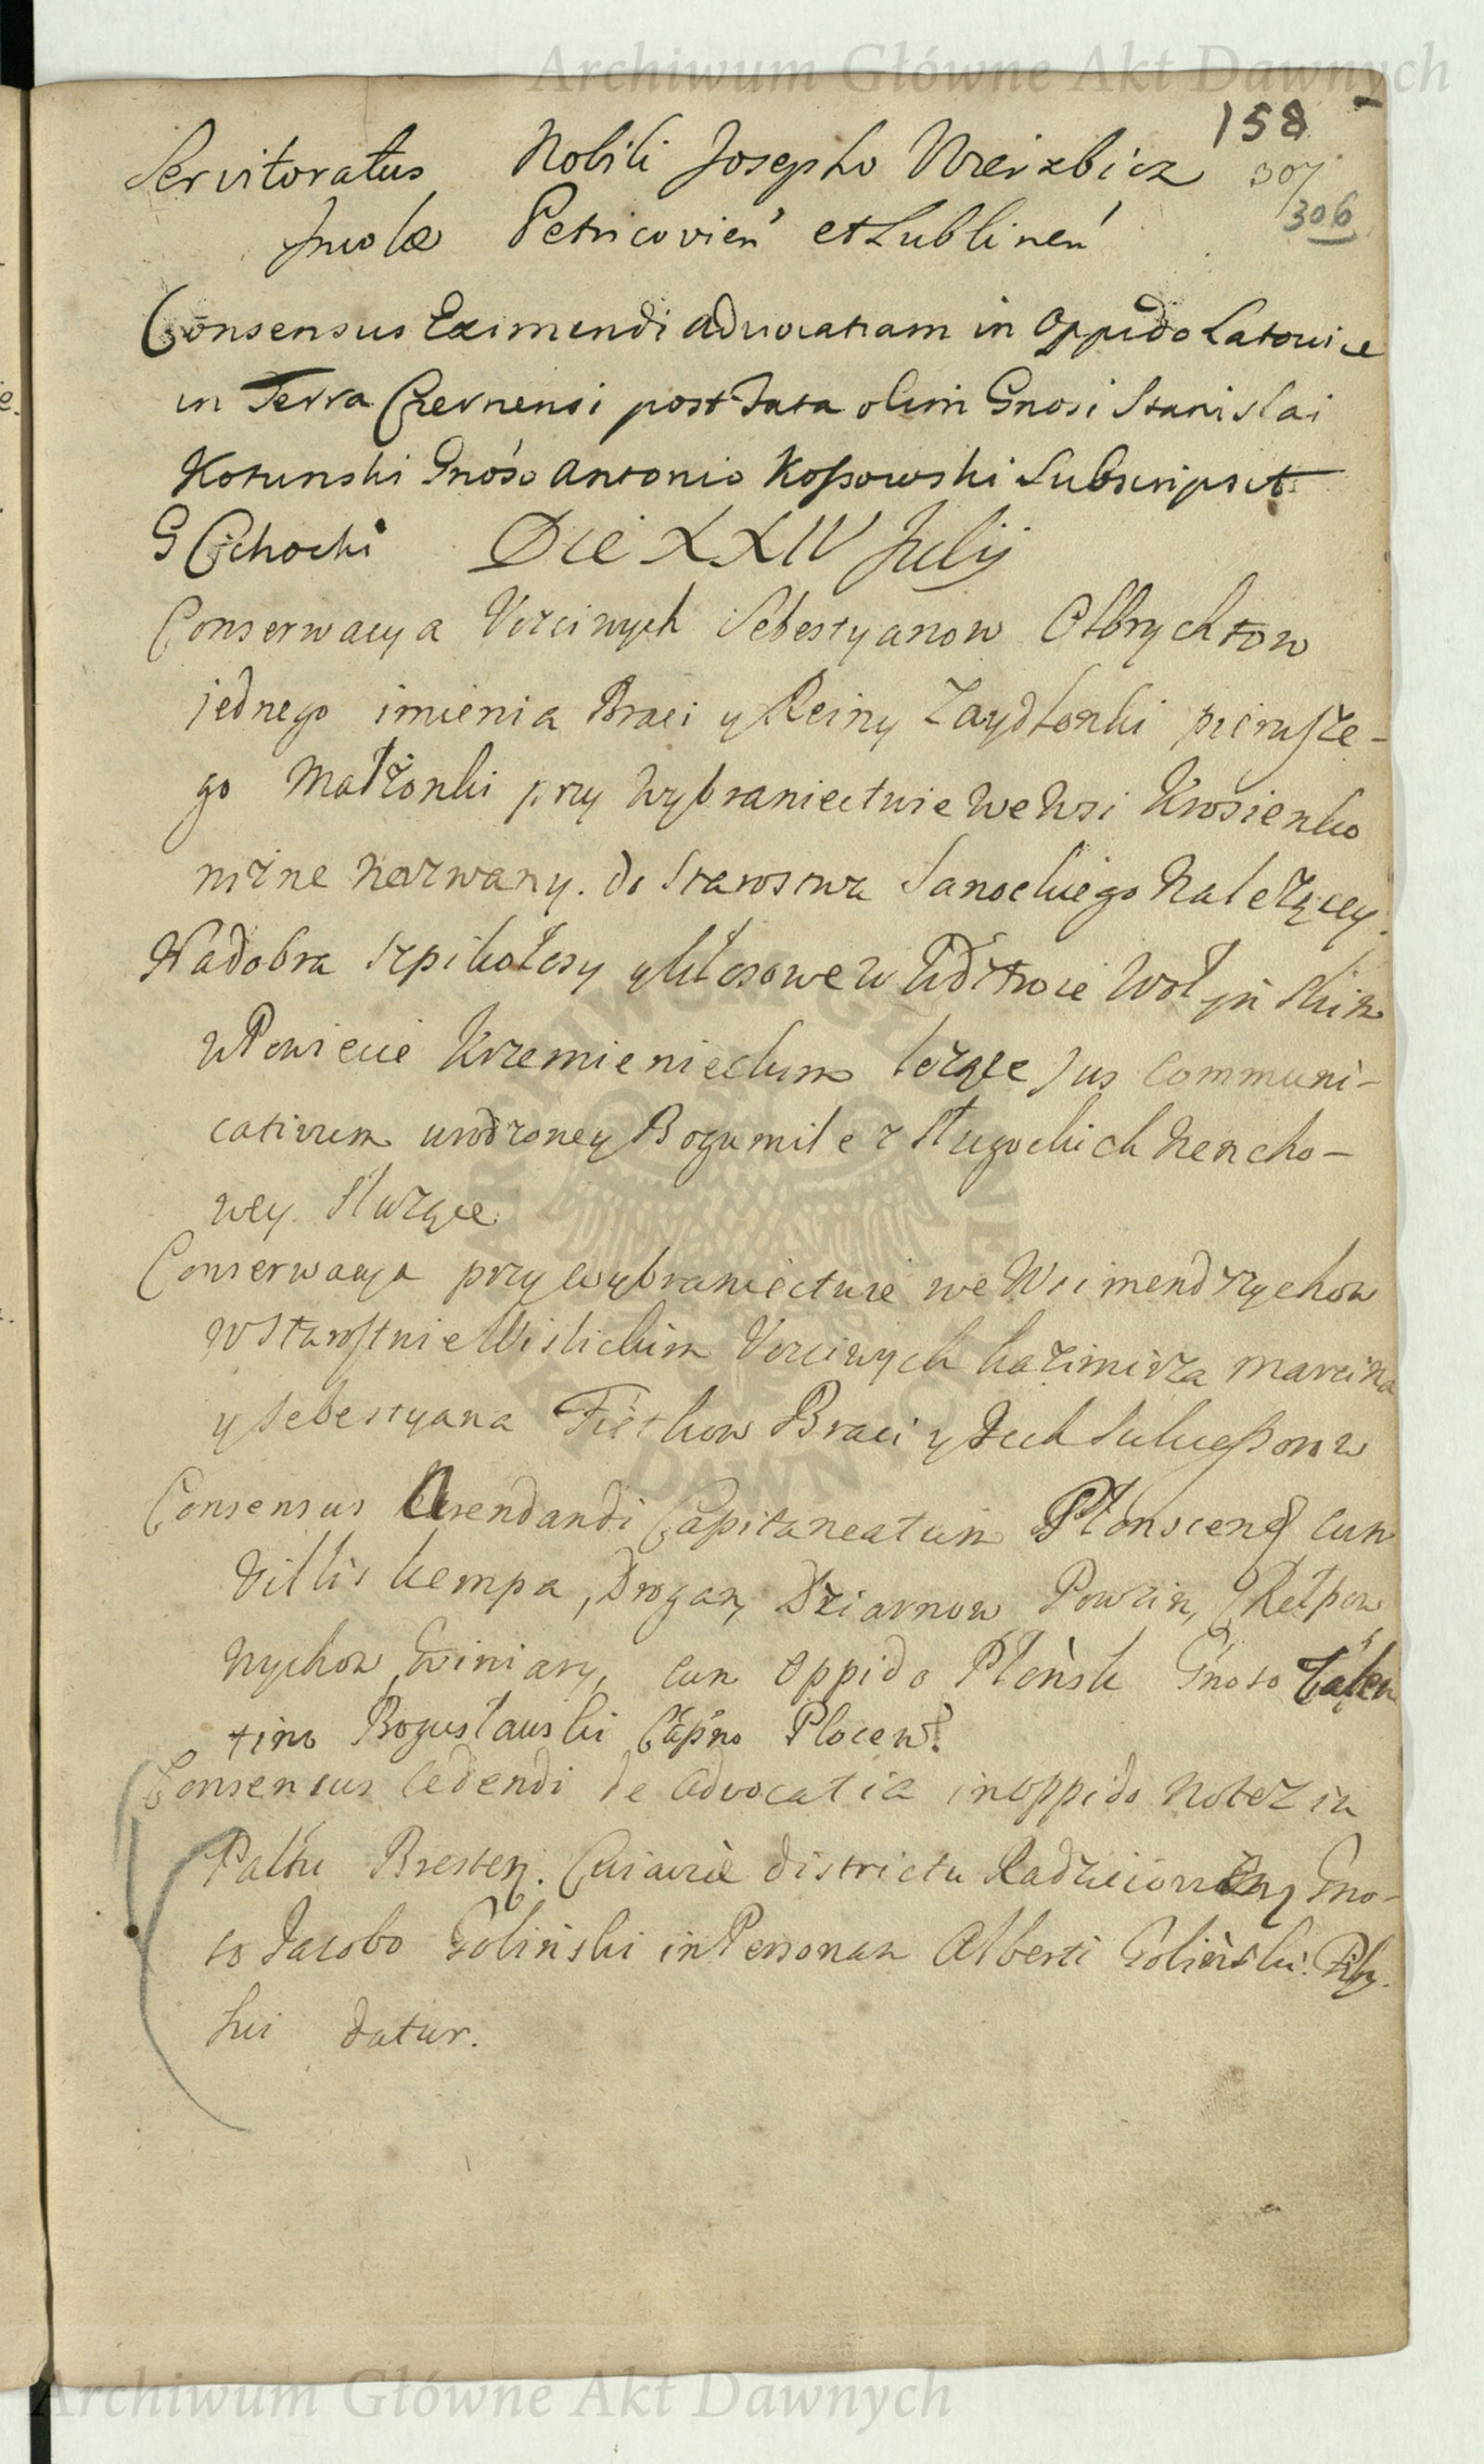 Archiwum Główne Akt Dawnych
158
307
306
Servitoratus Nobili Josepho Wierzbicz
Incolæ Petricovień et Lublineń
Consensus Eximendi advocatiam in Oppido Latowice
in Terra Czernensi post Fata olim Gnosi Stanislai
Kotunski Gnoso Antonio Kossowski Subscripsit
G Cichocki Die XXIV Julij
Conserwacya Uczciwych Sebestyanow Olbrychtow
jednego imienia Braci y Reiny Zaydlonki pierwsze-
go Małżonki przy Wybraniectwie we Wsi Krosienko
niżne nazwany. do Starostwa Sanockiego Należącey.
Na dobra Szpikołosy y Kłosowe w Wdztwie Wołyńskim
w Powiecie Krzemienieckim leżące Jus Communi-
cativum urodzoney Bogumile z Długockich
wey Służące
Conserwacya przy Wybraniectwie we Wsi mendrzychow
w Starostwie Wislickim Uczciwych Kazimirza Marcina
y Sebestyana Fietkow Braci y Ich Sukcessorow
Consensus Arendandi Capitaneatum Płonscens cum
Villis Kempa, Drogan, Dziarnow Powsin,
Wychow, Winiary, cum Oppido Płońsk Gnoso Valen
tino Bogusławski Capno Plocen.
Consensus cedendi de advocatia in oppido Notez in
Palttu Bresten. Cuiaviæ districtu Radzieiovien Gno-
so Jacobo Goliński in Personam Alberti Goliński. Fily.
sui datur.
Archiwum Główne Akt Dawnych